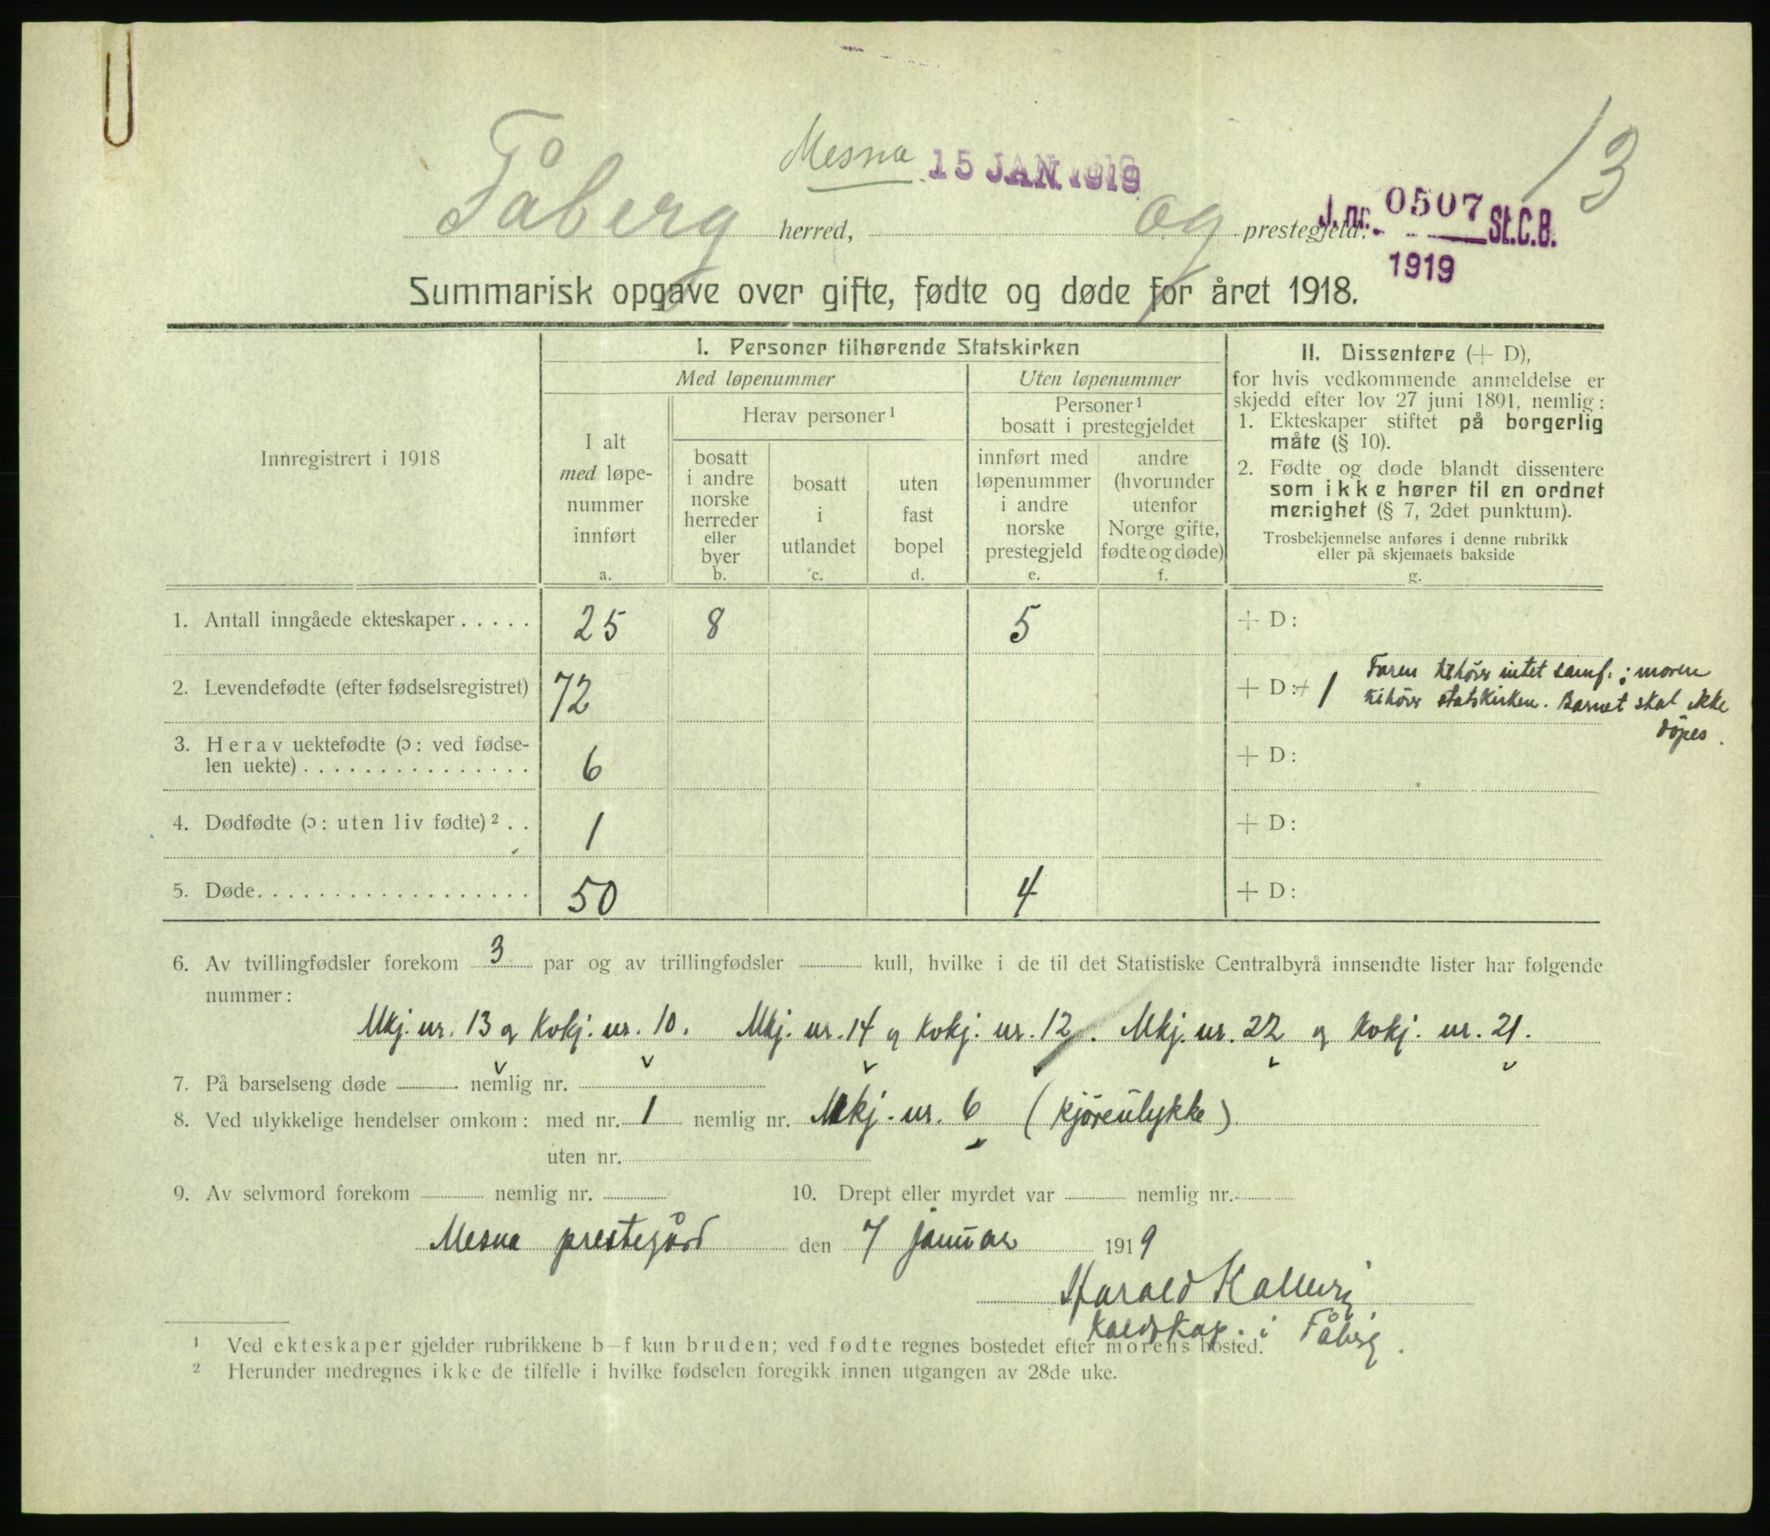 Mesna 15 JAN 1919 13
Fåberg herred, og prestegjeld. J. nr. 0507 St.C.B.
1919
Summarisk opgave over gifte, fødte og døde for året 1918.
Innregistrert i 1918
I. Personer tilhørende Statskirken
Med løpenummer
Uten løpenummer
I alt
med løpe-
nummer
innført
a.
Herav personer¹
bosatt
i andre
norske
herreder
eller
byer
b.
bosatt
i
utlandet
c.
uten
fast
bopel
d.
Personer¹
bosatt i prestegjeldet
innført med
løpenummer
i andre
norske
prestegjeld
e.
andre
(hvorunder
utenfor
Norge gifte,
fødte og døde)
f.
II. Dissentere (+ D),
for hvis vedkommende anmeldelse er
skjedd efter lov 27 juni 1891, nemlig:
1. Ekteskaper stiftet på borgerlig
måte (§ 10).
2. Fødte og døde blandt dissentere
som ikke hører til en ordnet
menighet (§ 7, 2det punktum).
Trosbekjennelse anføres i denne rubrikk
eller på skjemaets bakside
g.
1. Antall inngåede ekteskaper..... 25 8 5 + D:
2. Levendefødte (efter fødselsregistret) 72 + D: + 1 Faren tilhører intet samf.; moren
tilhører statskirken. Barnet skal ikke
døpes.
3. Herav uektefødte (ɔ: ved fødse-
len uekte)............... 6 + D:
4. Dødfødte (ɔ: uten liv fødte)² . . 1 + D:
5. Døde.................. 50 4 + D:
6. Av tvillingfødsler forekom 3 par og av trillingfødsler kull, hvilke i de til det Statistiske Centralbyrå innsendte lister har følgende
nummer:
Mkj. nr. 13 og Kvkj. nr. 10. Mkj. nr. 14 og Kvkj. nr. 12. Mkj. nr. 22 og Kvkj. nr. 21.
7. På barselseng døde nemlig nr.
8. Ved ulykkelige hendelser omkom: med nr. 1 nemlig nr. Mkj. nr. 6 (kjøreulykke)
uten nr.
9. Av selvmord forekom nemlig nr. 10. Drept eller myrdet var nemlig nr.
Mesna prestegård den 7 januar 1919
Harald
i Fåberg.
¹ Ved ekteskaper gjelder rubrikkene b–f kun bruden; ved fødte regnes bostedet efter morens bosted.
² Herunder medregnes ikke de tilfelle i hvilke fødselen foregikk innen utgangen av 28de uke.